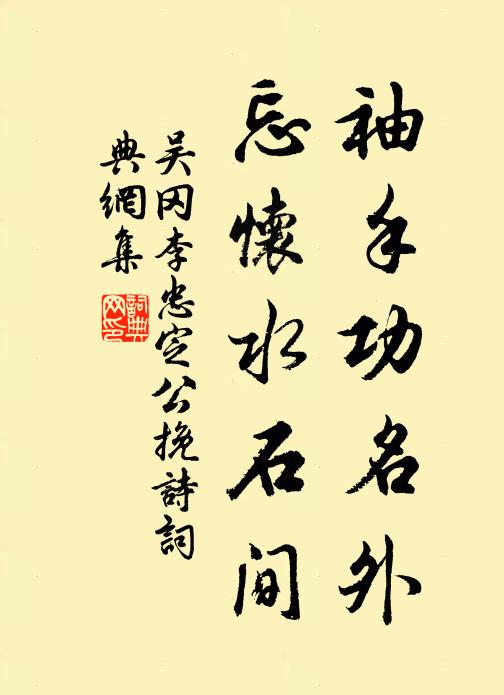 袖手功名外
忘懷水石間
吴冈李忠定公挽詩詞
典網集
詞典
网印